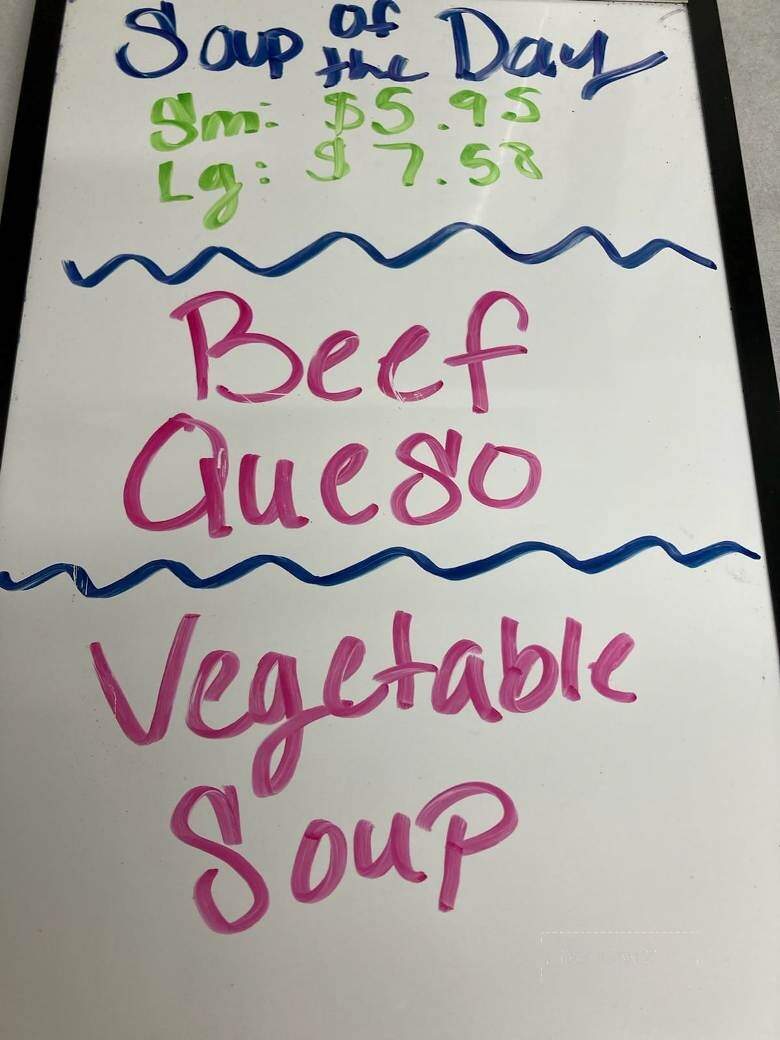 Soup of the Day
Sm: $5.95
Lg: $7.58
Beef
Queso
Vegetable
Soup